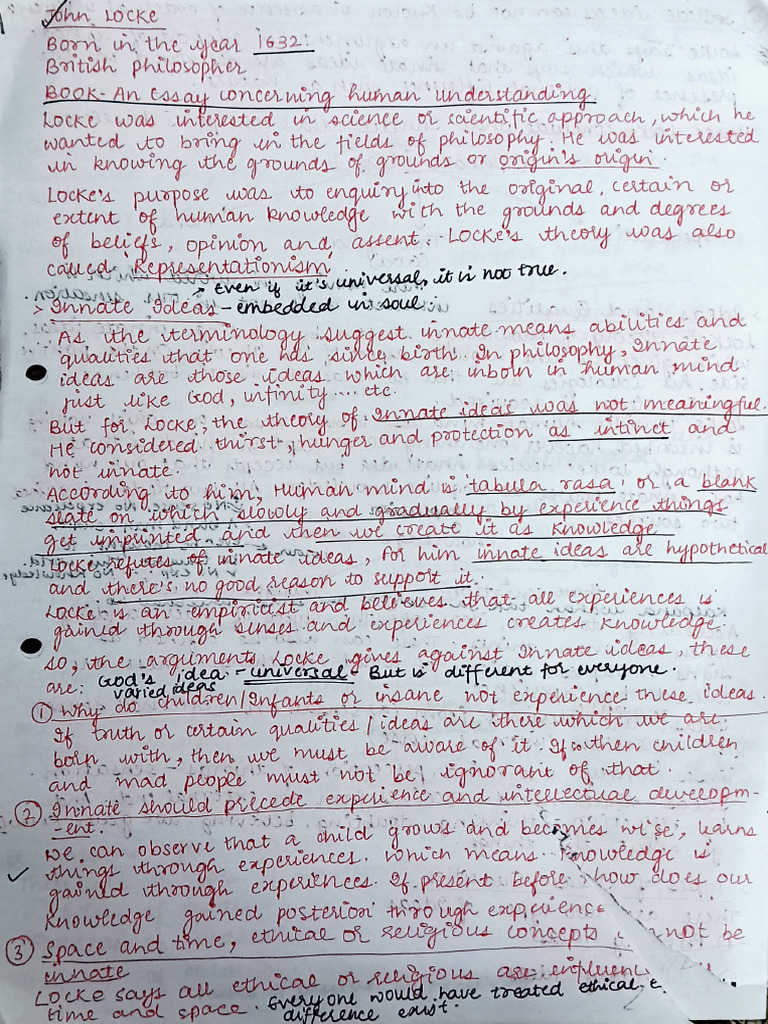 John Locke
Born in the year 1632:
British philosopher
BOOK- An Essay concerning human understanding
Locke was interested in science or scientific approach, which he
wanted to bring in the fields of philosophy. He was interested
in knowing the grounds of grounds or origin's origin.
Locke's purpose was to enquiry into the original, certain or
extent of human knowledge with the grounds and degrees
of beliefs, opinion and assent. Locke's theory was also
called 'Representationism'
→ Even if it's universal, it is not true.
> Innate Ideas - embedded in soul.
As the terminology suggest innate means abilities and
qualities that one has since birth. In philosophy, Innate
ideas are those ideas which are inborn in human mind
just like God, infinity .... etc.
But for Locke, the theory of innate ideas was not meaningful.
He considered thirst, hunger and protection as intinct and
not innate.
According to him, Human mind is 'tabula rasa' or a blank
slate on which slowly and gradually by experience things
get imprinted and then we create it as knowledge
Locke refutes of innate ideas, for him innate ideas are hypothetical
and there's no good reason to support it.
Locke is an empiricist and believes that all experiences is
gained through senses and experiences creates knowledge.
so, the arguments Locke gives against Innate ideas, these
are: God's idea - universal - But is different for everyone.
varied ideas
① Why do children/Infants or insane not experience these ideas.
If truth or certain qualities/ideas are there which we are
born with, then we must be aware of it. If then children
and mad people must not be ignorant of that.
② Innate should precede experience and intellectual developm-
-ent.
We can observe that a child grows and becomes wise, learns
things through experiences. which means knowledge is
gained through experiences. If present before how does our
knowledge gained posterior through experience
③ Space and time, ethical or religious concepts not be
innate
Locke says all ethical or religious are
time and space. Everyone would have treated ethical
difference exist.